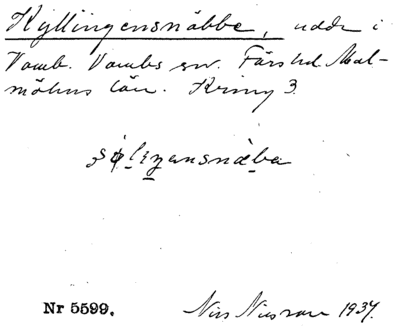 Kyllingensnäbbe, udde i
Vomb. Vombs sn. Färs hd. Mal-
möhus län. Kring 3.
sø̨liŋansnæba
Nr 5599.
Nils Nilsson 1937.